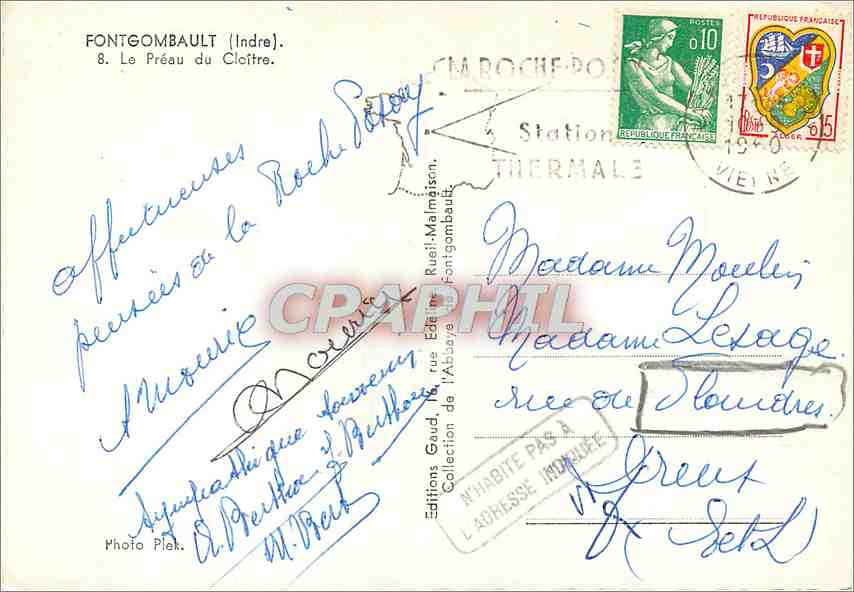 FONTGOMBAULT (Indre).
8. Le Préau du Cloître.
affectueuses
pensées de la Roche Posay
A Mourie
Mourie
Sympathique souvenir
M. Bert
Photo Plek.
Editions Gaud, rue Edeline, Rueil-Malmaison.
Collection de l'Abbaye de Fontgombault.
LA ROCHE-PO
Station
THERMALE
POSTES
0,10
REPUBLIQUE FRANÇAISE
REPUBLIQUE FRANÇAISE
POSTES
0,15
ALGER
VIENNE
Madame Moulin
Madame Lesage
rue de Flandres.
Dreux
(S et L)
N'HABITE PAS À
L'ADRESSE INDIQUÉE
CPAPHIL